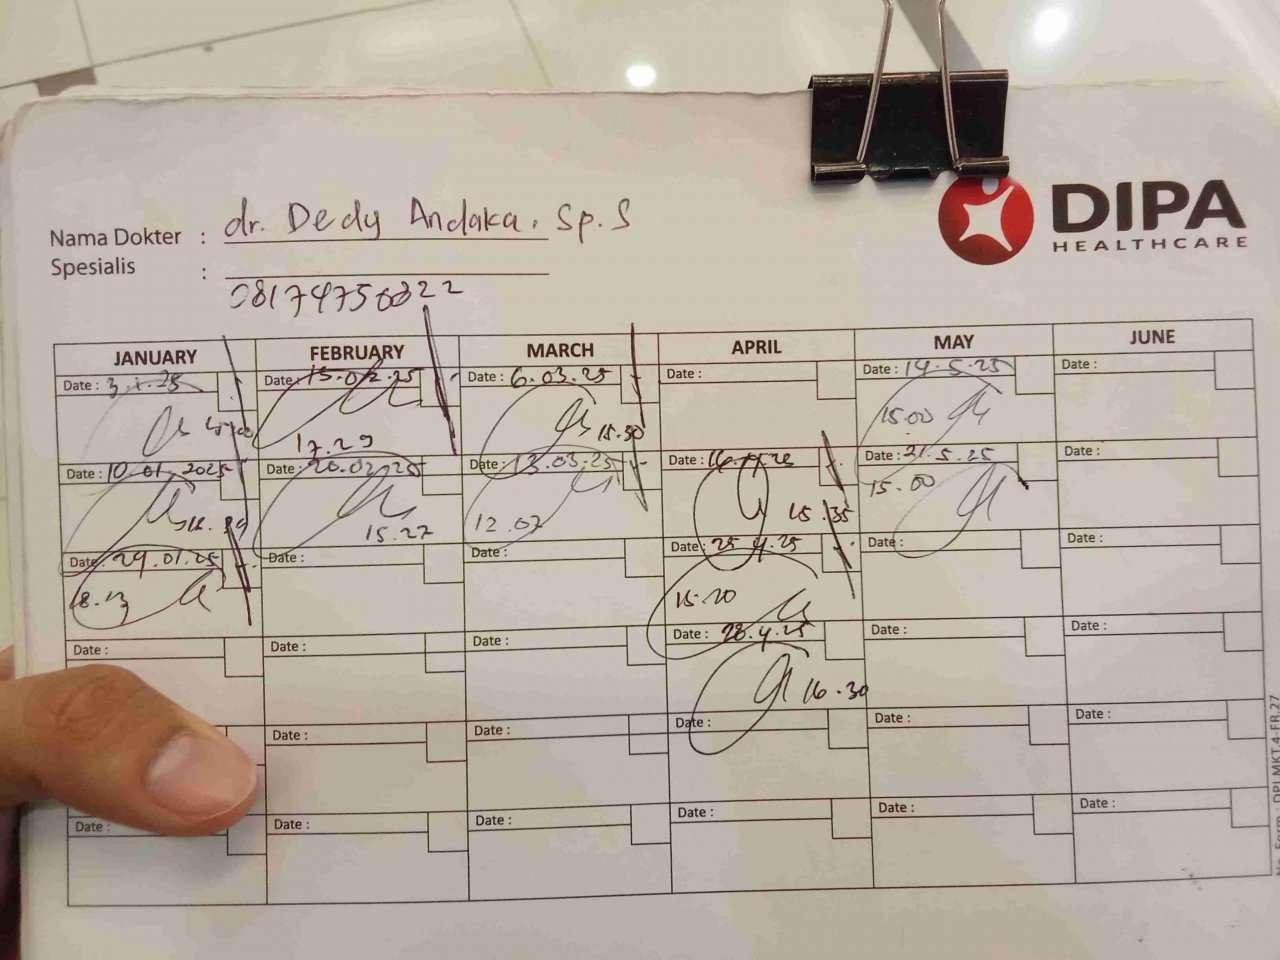 DIPA
HEALTHCARE
Nama Dokter : dr. Dedy Andaka. Sp.S
Spesialis :
JANUARY FEBRUARY MARCH APRIL MAY JUNE
Date : 3.1.25 Date : 15.02.25 Date : 6.03.25 Date : Date : 14.5.25 Date :
17.29 15.30 15.00
Date : 10.01.2025 Date : 20.02.25 Date : 13.03.25 Date : Date : 21.5.25 Date :
15.27 12.07 15.35 15.00
Date : 29.01.25 Date : Date : Date : 25.4.25 Date : Date :
18.13 15.20
Date : Date : Date : Date : 28.4.25 Date : Date :
16.30
Date : Date : Date : Date : Date :
Date : Date : Date : Date : Date : Date :